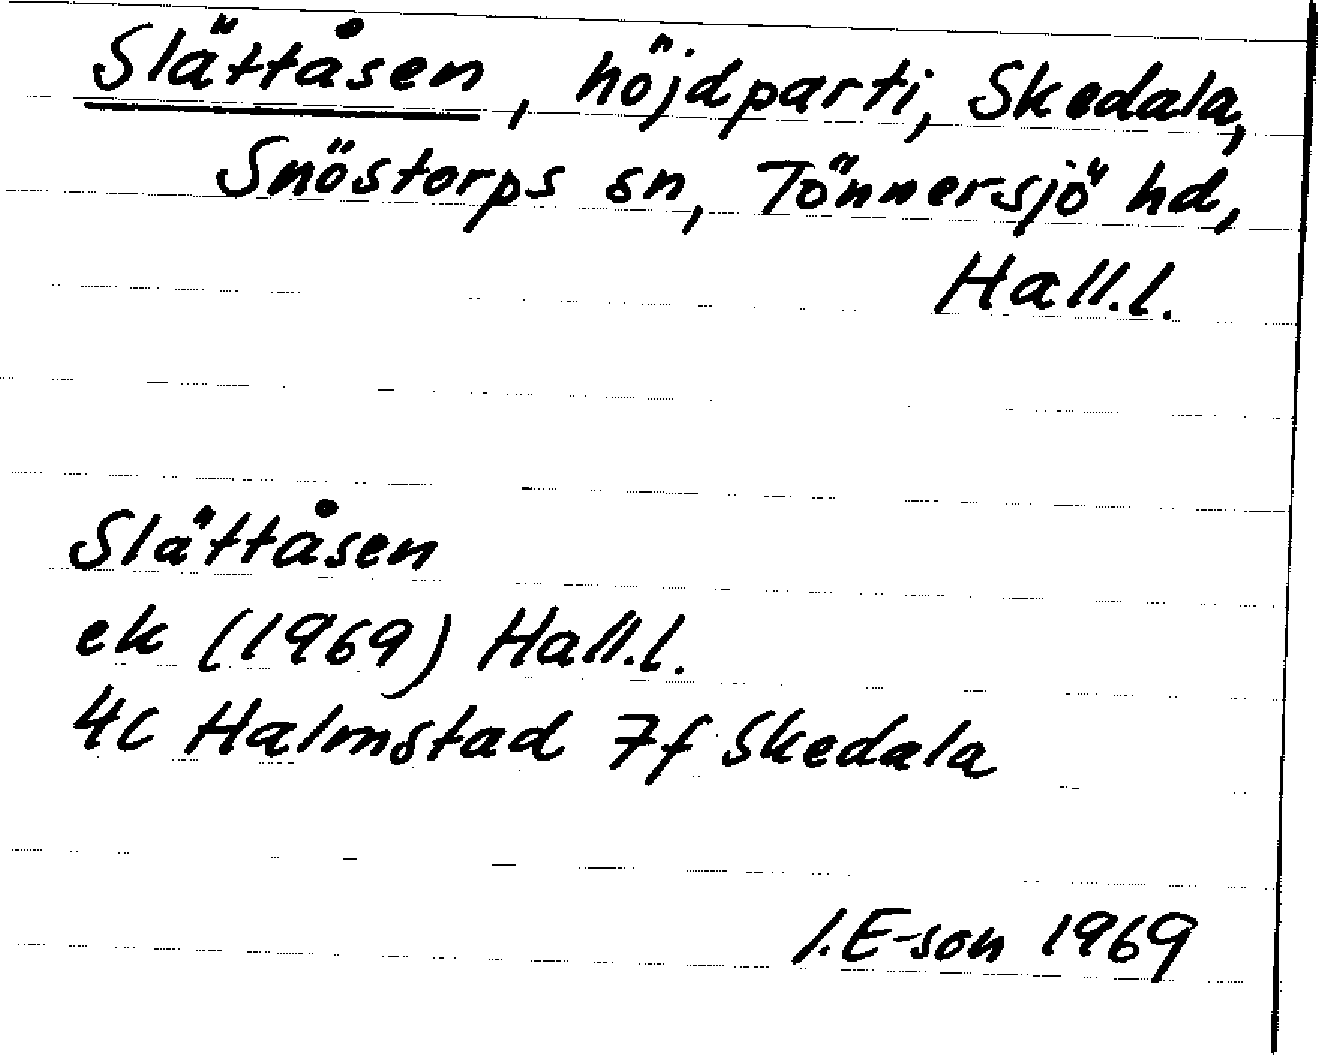 Slättåsen, höjdparti, Skedala,
Snöstorps sn, Tönnersjö hd,
Hall.l.
Slättåsen
ek (1969) Hall.l.
4C Halmstad 7f Skedala
I.E-son 1969